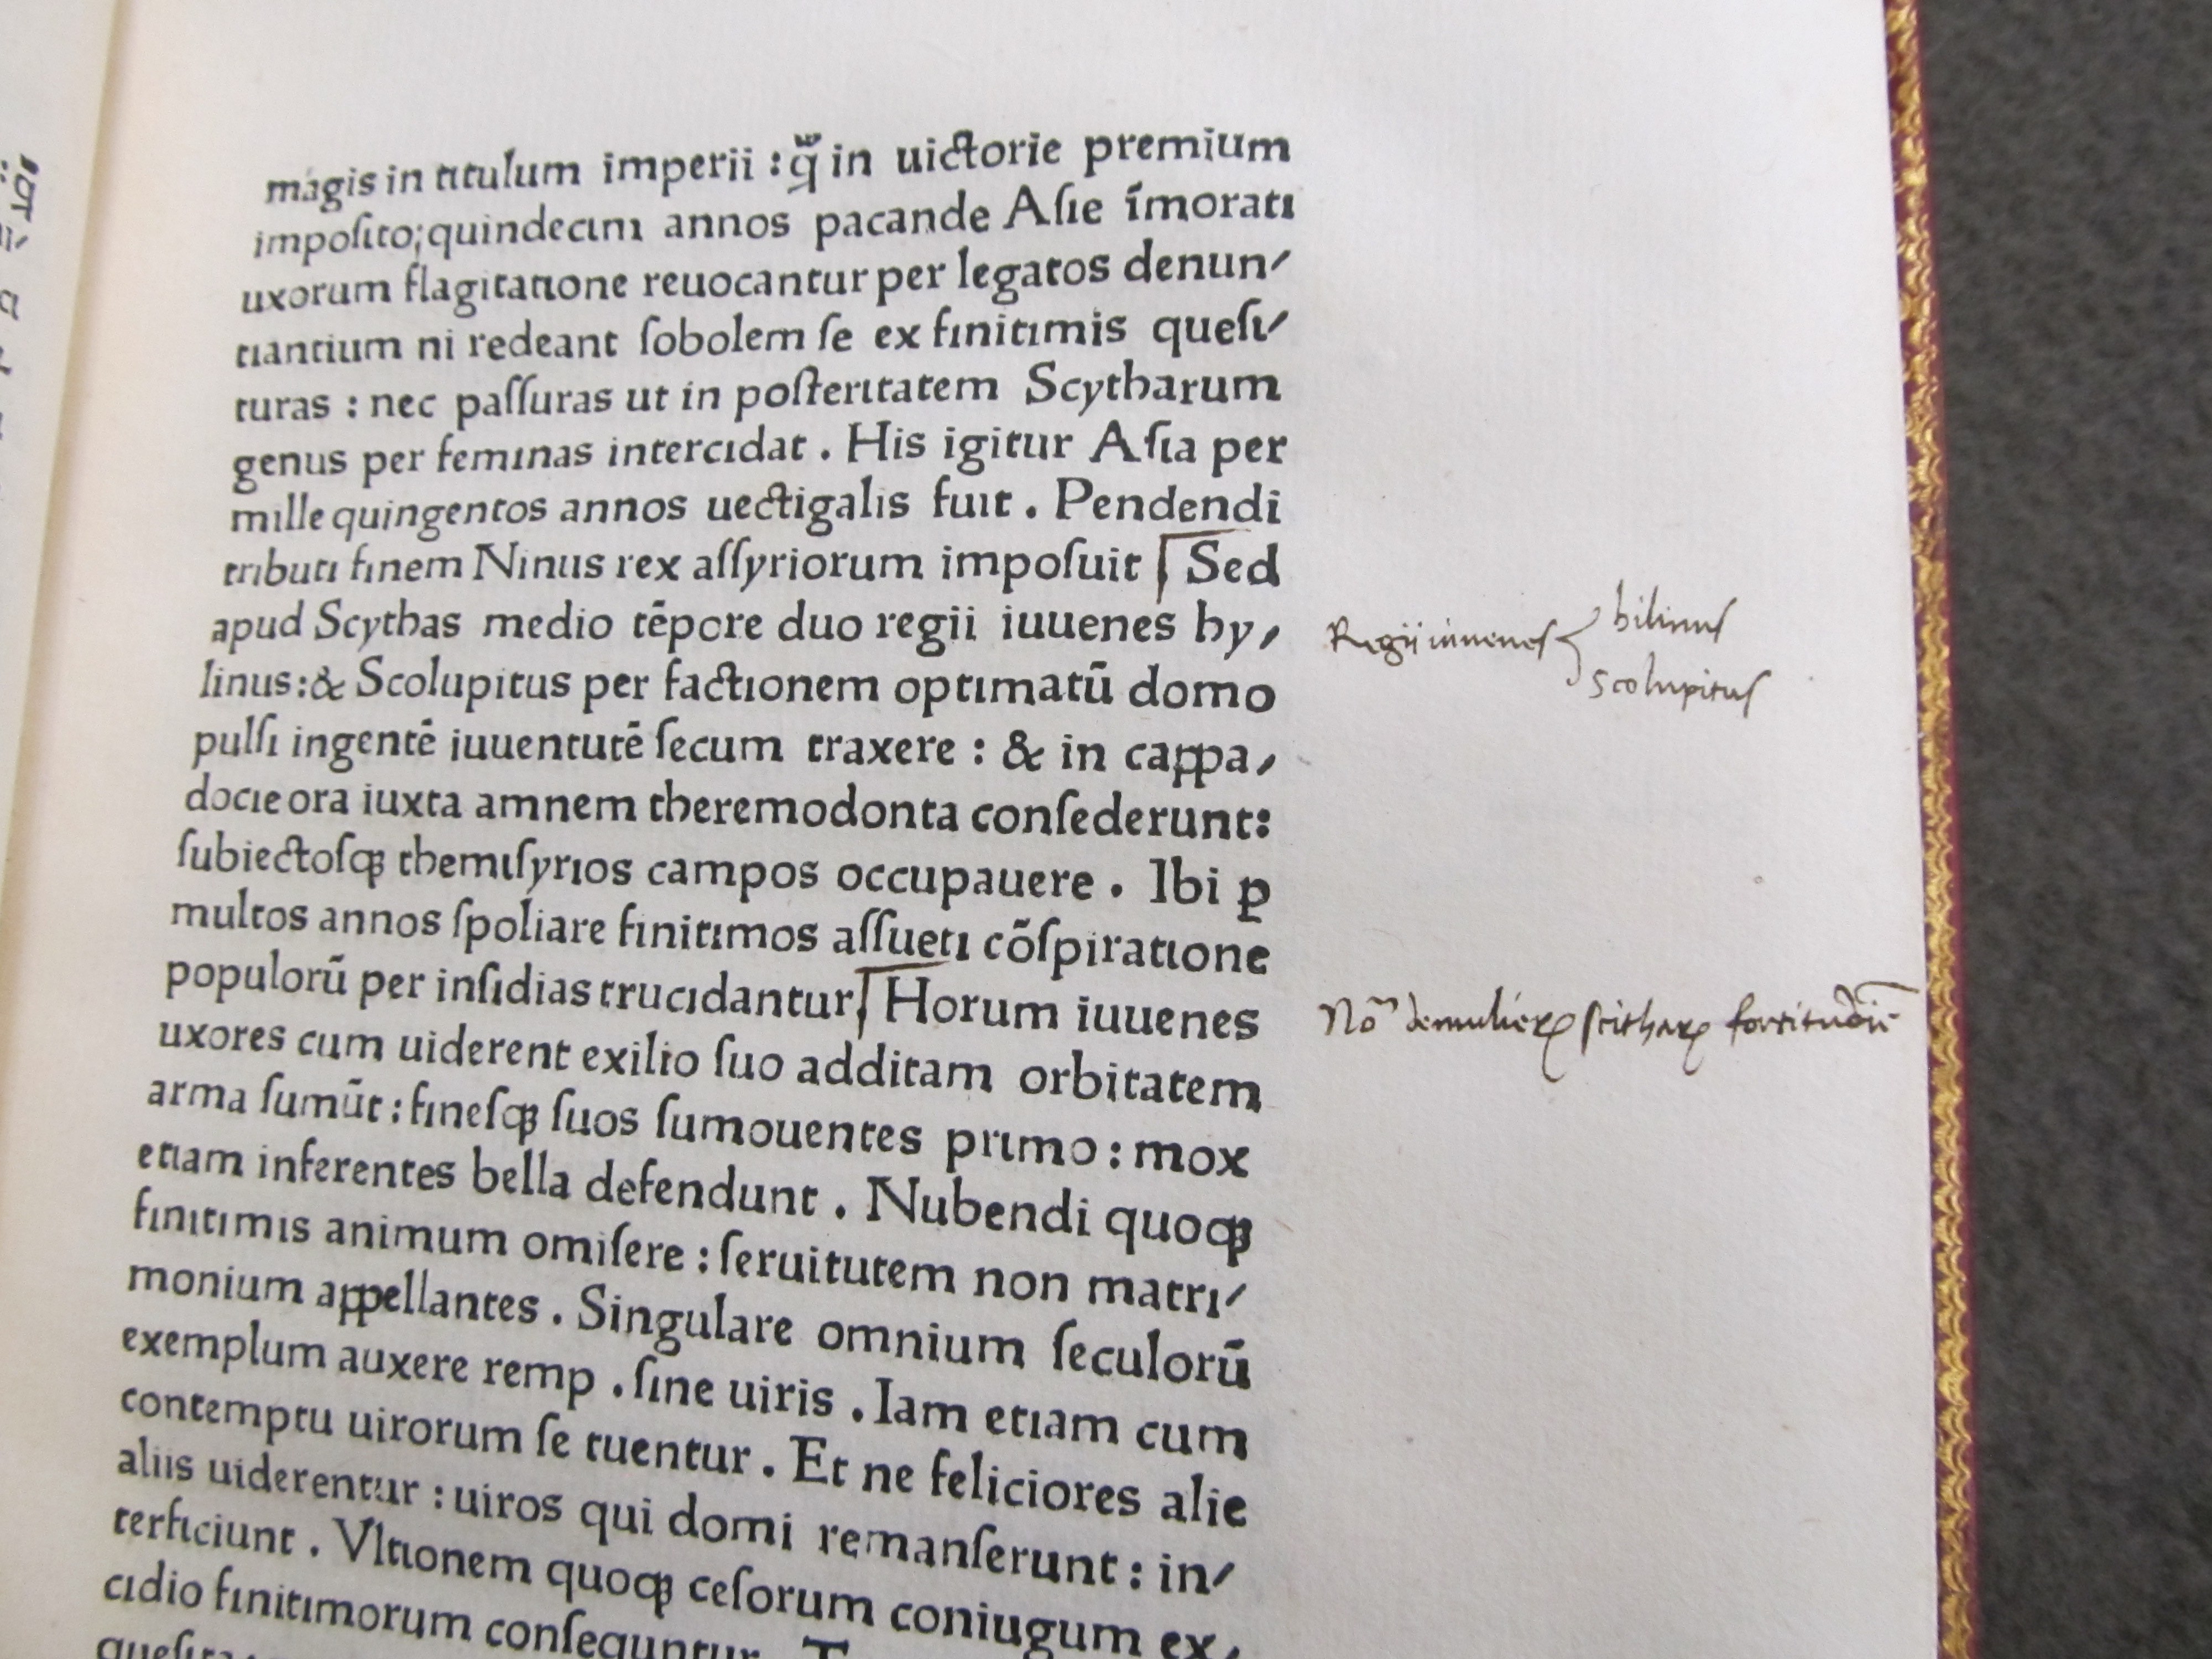 magis in titulum imperii : q̃ in uictorie premium
imposito; quindecim annos pacande Asie īmorati
uxorum flagitatione reuocantur per legatos denun⸗
tiantium ni redeant sobolem se ex finitimis quesi⸗
turas : nec passuras ut in posteritatem Scytharum
genus per feminas intercidat . His igitur Asia per
mille quingentos annos uectigalis fuit . Pendendi
tributi finem Ninus rex assyriorum imposuit Sed
apud Scythas medio tēpore duo regii iuuenes hy⸗
linus : & Scolupitus per factionem optimatū domo
pulsi ingentē iuuentutē secum traxere : & in cappa⸗
docie ora iuxta amnem theremodonta consederunt:
subiectosqꝫ themisyrios campos occupauere . Ibi ꝑ
multos annos spoliare finitimos assueti cōspiratione
populorū per insidias trucidantur. Horum iuuenes
uxores cum uiderent exilio suo additam orbitatem
arma sumūt : finesqꝫ suos sumouentes primo : mox
etiam inferentes bella defendunt . Nubendi quoqꝫ
finitimis animum omisere : seruitutem non matri⸗
monium appellantes . Singulare omnium seculorū
exemplum auxere remp . sine uiris . Iam etiam cum
contemptu uirorum se tuentur . Et ne feliciores alie
aliis uiderentur : uiros qui domi remanserunt : in⸗
terficiunt . Vltionem quoqꝫ cesorum coniugum ex⸗
cidio finitimorum consequntur
Regii iuuenes
hilinus
scolupitus
No de mulierꝝ scitharꝝ fortitudīe